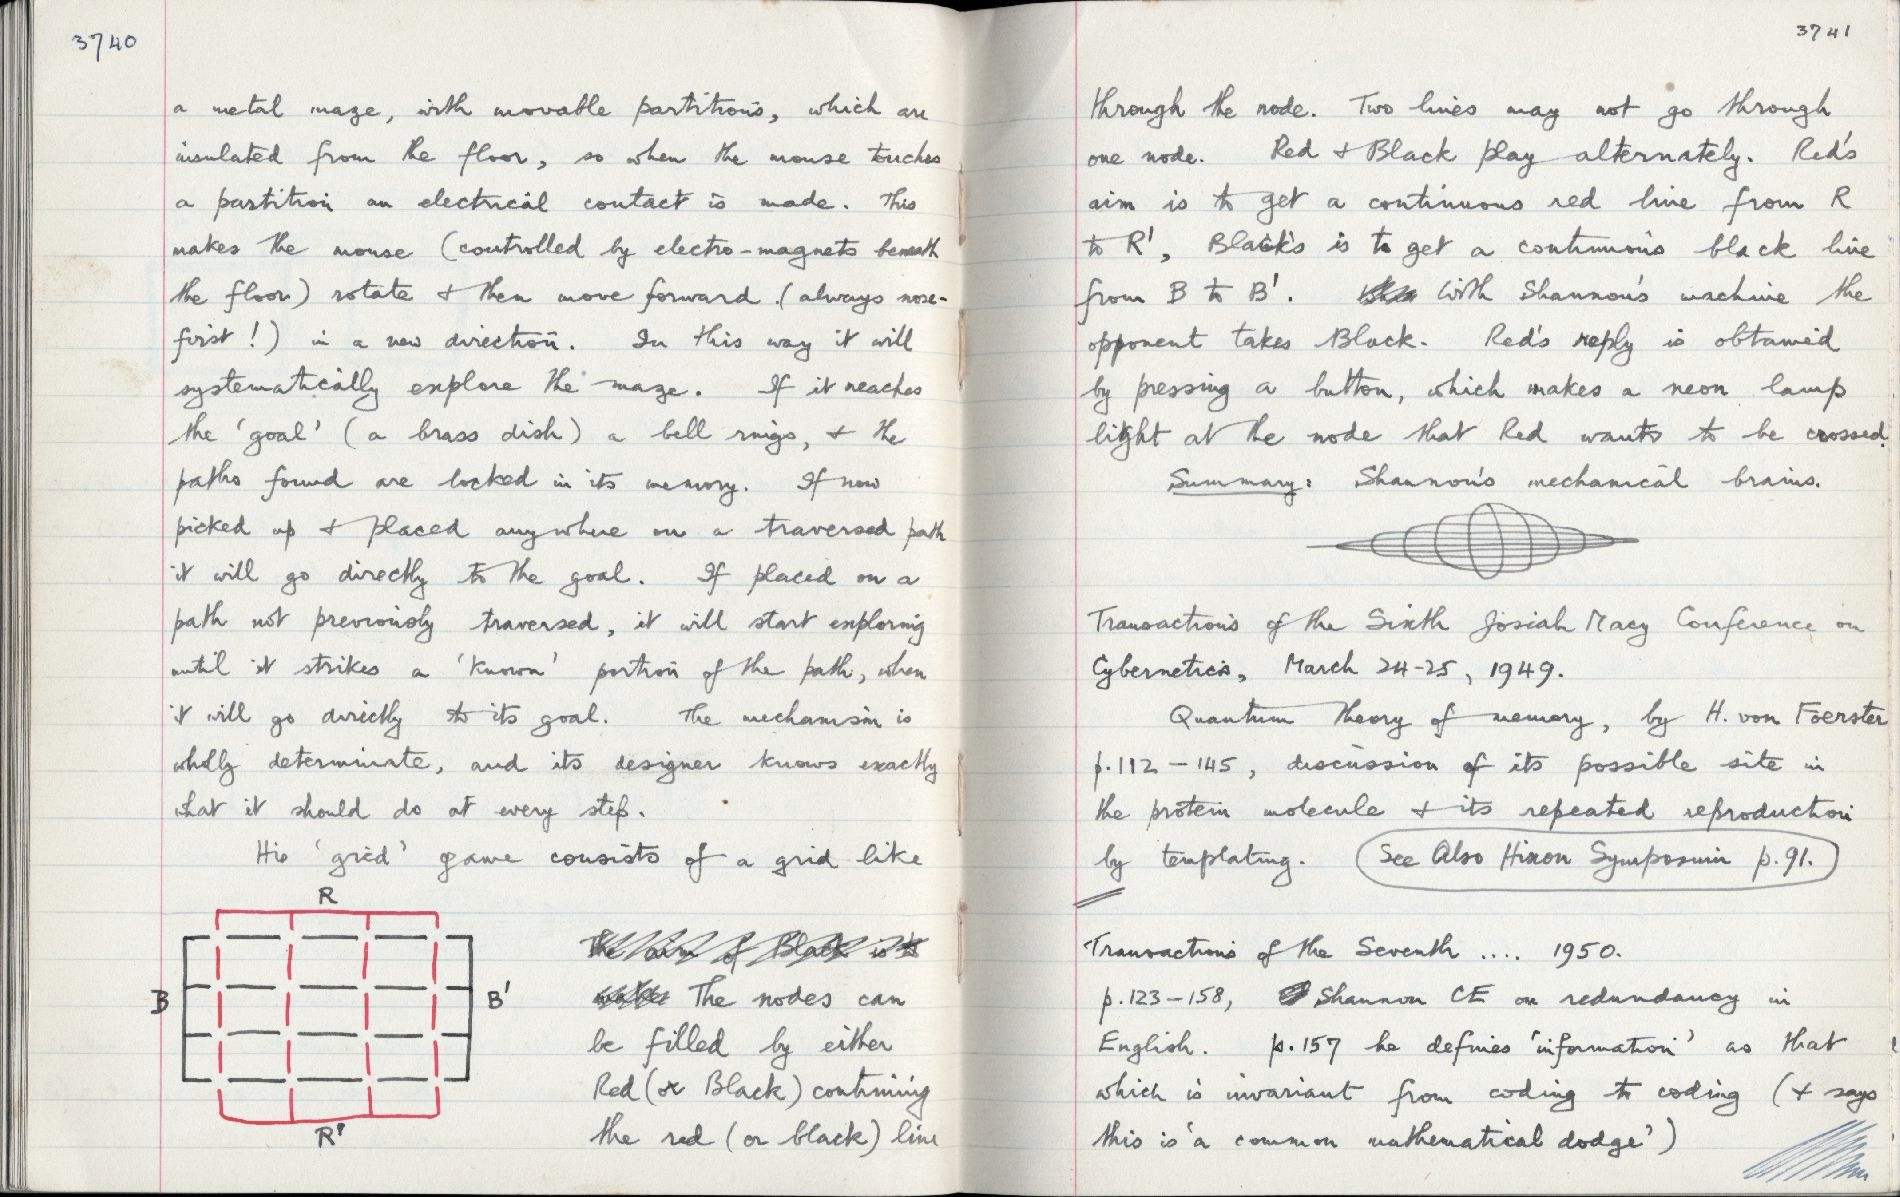 3740
a metal maze, with movable partitions, which are
insulated from the floor, so when the mouse touches
a partition an electrical contact is made. This
makes the mouse (controlled by electro-magnets beneath
the floor) rotate & then move forward (always nose-
first!) in a new direction. In this way it will
systematically explore the maze. If it reaches
the 'goal' (a brass dish) a bell rings, & the
paths found are locked in its memory. If now
picked up & placed anywhere on a traversed path
it will go directly to the goal. If placed on a
path not previously traversed, it will start exploring
until it strikes a 'known' portion of the path, when
it will go directly to its goal. The mechanism is
wholly determinate, and its designer knows exactly
what it should do at every step.
His 'grid' game consists of a grid like
R
B
B'
R'
The aim of Black is to
The nodes can
be filled by either
Red (or Black) continuing
the red (or black) line
3741
through the node. Two lines may not go through
one node. Red & Black play alternately. Red's
aim is to get a continuous red line from R
to R', Black's is to get a continuous black line
from B to B'. With Shannon's machine the
opponent takes Black. Red's reply is obtained
by pressing a button, which makes a neon lamp
light at the node that Red wants to be crossed.
Summary: Shannon's mechanical brains.
Transactions of the Sixth Josiah Macy Conference on
Cybernetics, March 24-25, 1949.
Quantum theory of memory, by H. von Foerster
p.112-145, discussion of its possible site in
the protein molecule & its repeated reproduction
by templating. See Also Hixon Symposium p.91.
Transactions of the Seventh .... 1950.
p.123-158, Shannon CE on redundancy in
English. p.157 he defines 'information' as that
which is invariant from coding to coding (& says
this is 'a common mathematical dodge')